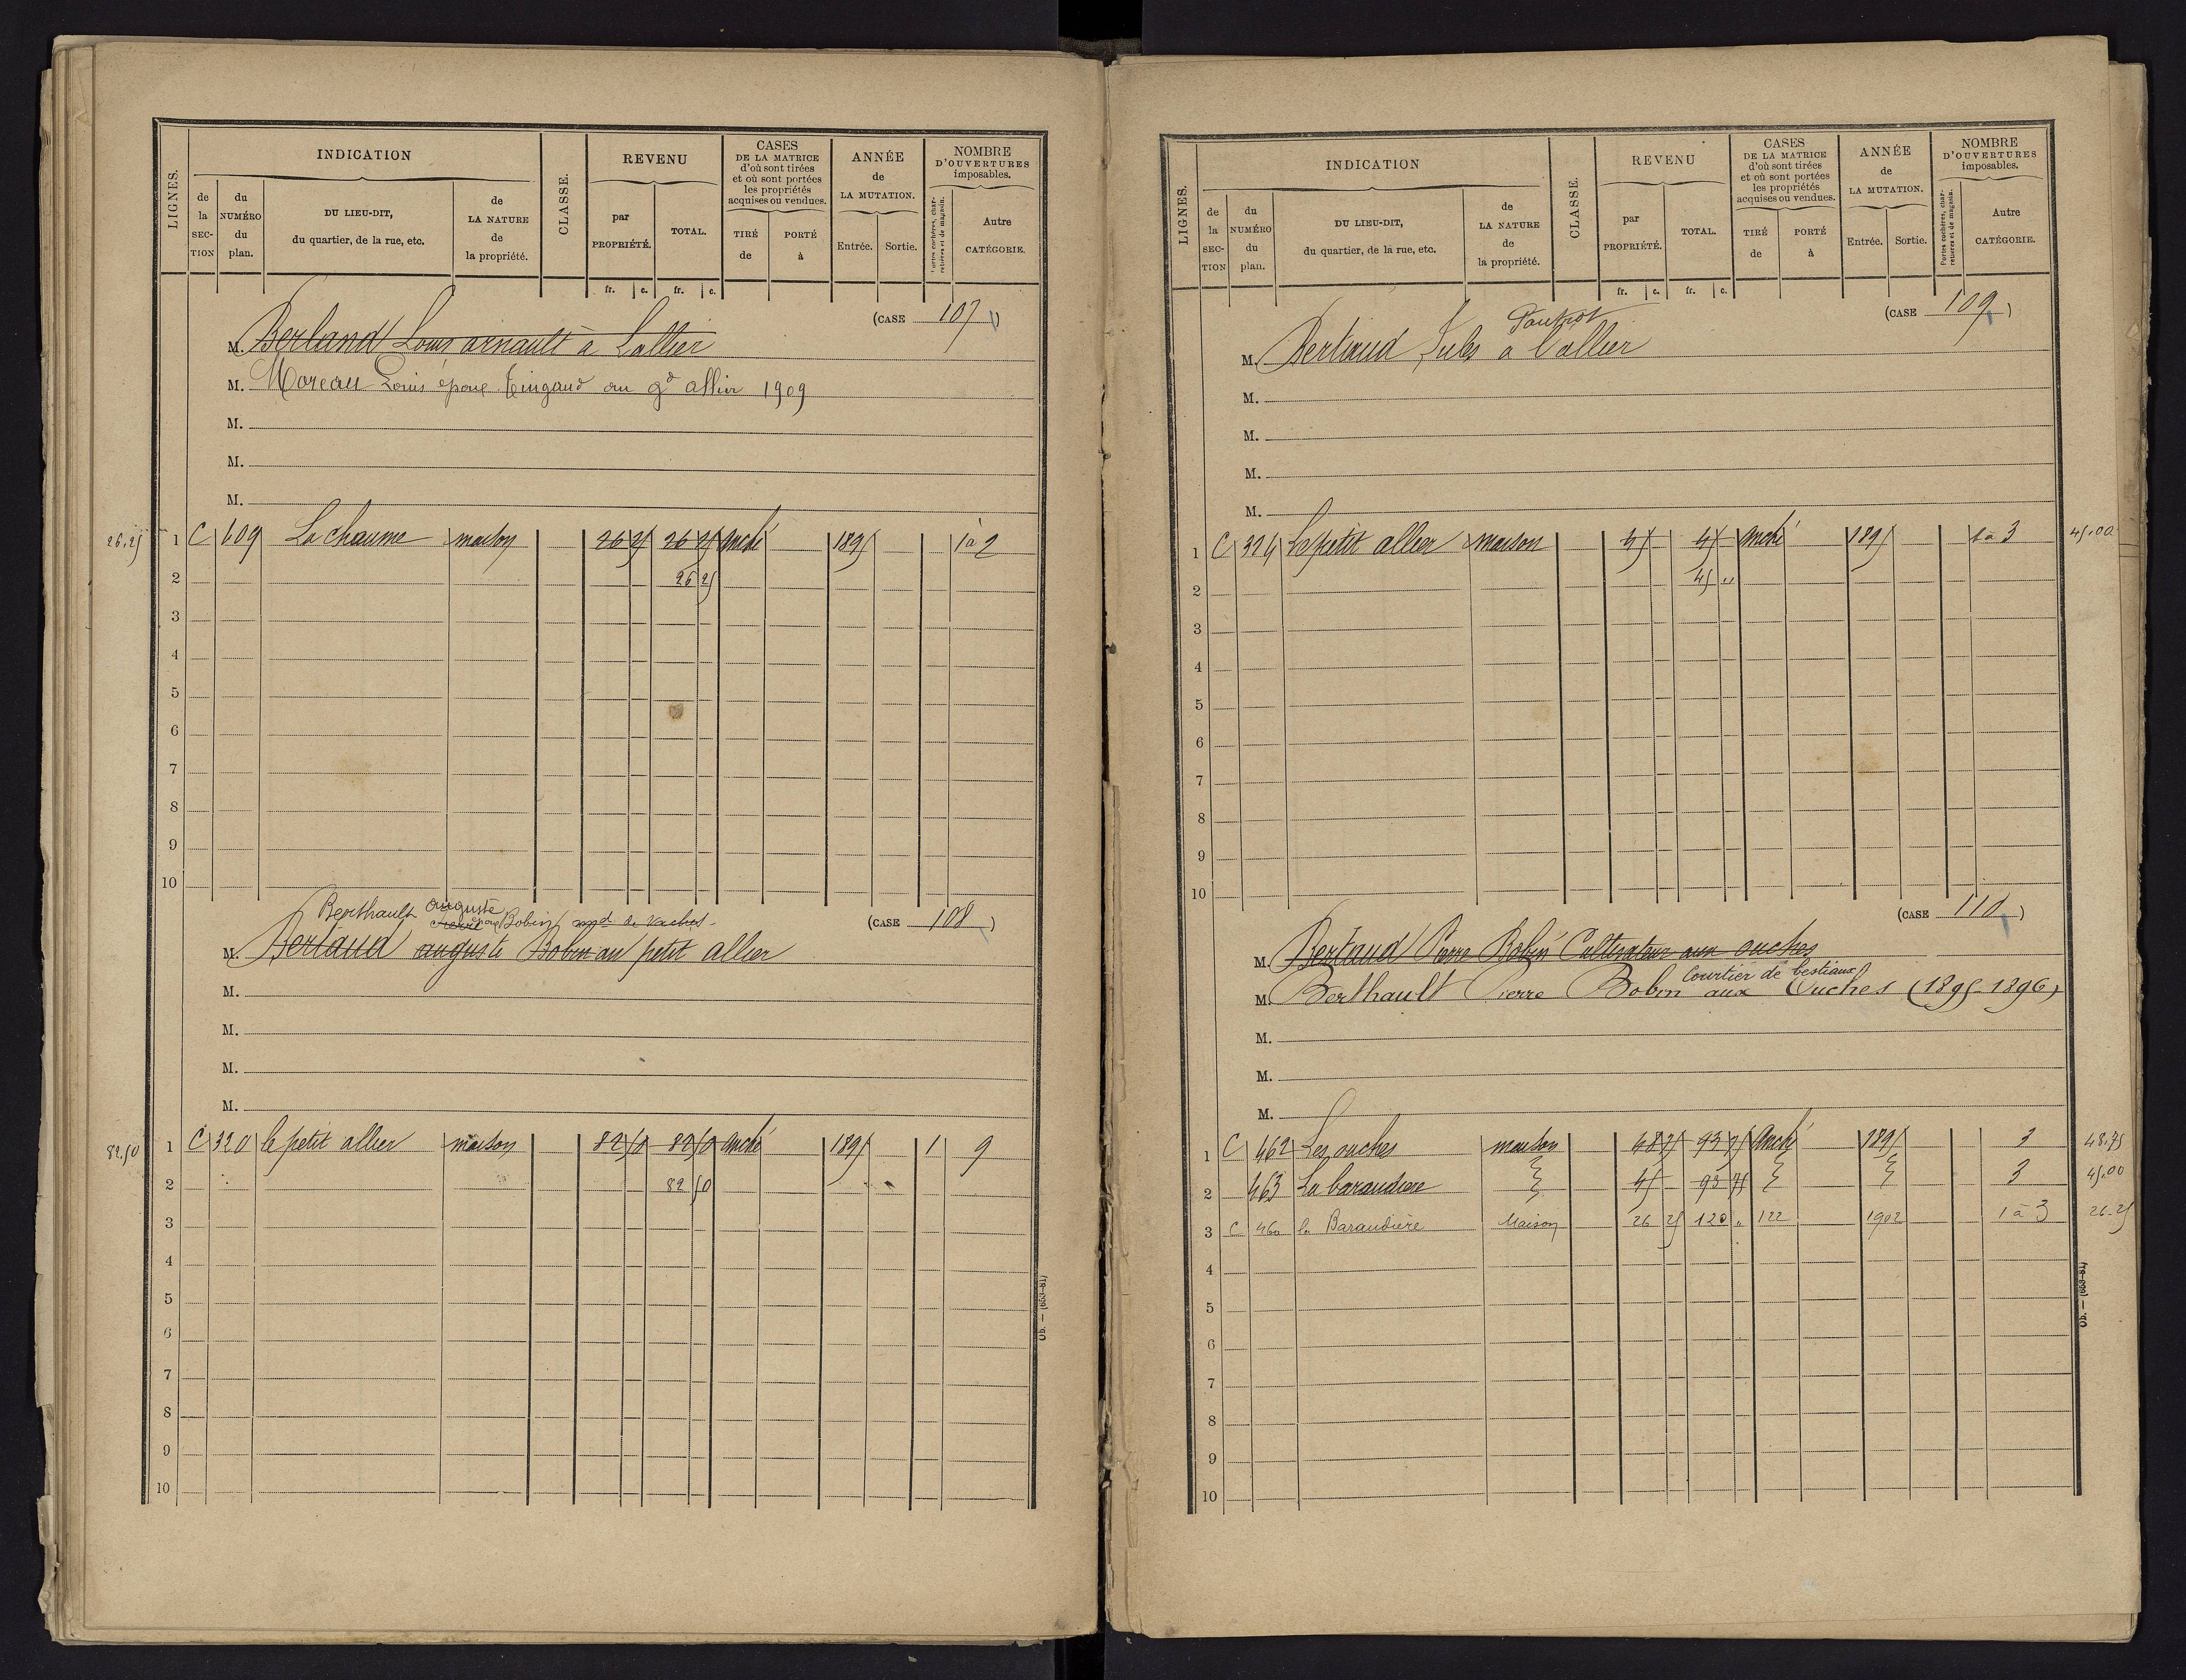 LIGNES.
INDICATION
de la SECTION
du NUMÉRO du plan.
DU LIEU-DIT, du quartier, de la rue, etc.
de LA NATURE de la propriété.
CLASSE.
REVENU
par PROPRIÉTÉ.
TOTAL.
CASES DE LA MATRICE d'où sont tirées et où sont portées les propriétés acquises ou vendues.
TIRÉ de
PORTÉ à
ANNÉE de LA MUTATION.
Entrée.
Sortie.
NOMBRE D'OUVERTURES imposables.
Portes cochères, charretières et de magasin.
Autre CATÉGORIE.
fr. c. fr. c.
(CASE 107)
M. Berland Louis arnault à Lallier
M. Moreau Louis époux Tingaud au gd allier 1909
M.
M.
M.
26.25 1 C 609 La chaume maison 26 25 26 25 Anché 1895 1 à 2
2 26 25
3
4
5
6
7
8
9
10
Berthault auguste
époux Bobin md de vaches
(CASE 108)
M. Bertaud auguste Bobin au petit allier
M.
M.
M.
M.
82.50 1 C 320 le petit allier maison 82 50 82 50 Anché 1895 1 9
2 82 50
3
4
5
6
7
8
9
10
Ob. — (653-81)
LIGNES.
INDICATION
de la SECTION
du NUMÉRO du plan.
DU LIEU-DIT, du quartier, de la rue, etc.
de LA NATURE de la propriété.
CLASSE.
REVENU
par PROPRIÉTÉ.
TOTAL.
CASES DE LA MATRICE d'où sont tirées et où sont portées les propriétés acquises ou vendues.
TIRÉ de
PORTÉ à
ANNÉE de LA MUTATION.
Entrée.
Sortie.
NOMBRE D'OUVERTURES imposables.
Portes cochères, charretières et de magasin.
Autre CATÉGORIE.
fr. c. fr. c.
(CASE 109)
M. Bertraud Jules à l'allier
M.
M.
M.
M.
1 C 324 Le petit allier maison 45 45 Anché 1895 1 à 3 45.00
2 45 "
3
4
5
6
7
8
9
10
(CASE 110)
M. Bertraud Pierre Bobin Cultivateur aux ouches
Courtier de bestiaux
M. Berthault Pierre Bobin aux Ouches (1895-1896)
M.
M.
M.
1 C 462 Les ouches maison 48 75 93 75 Anché 1895 3 48.75
2 463 La baraudiere 45 93 75 3 45.00
3 C 460 la Baraudière Maison 26 25 120 " 122 1902 1 à 3 26.25
4
5
6
7
8
9
10
Ob. — (653-81)